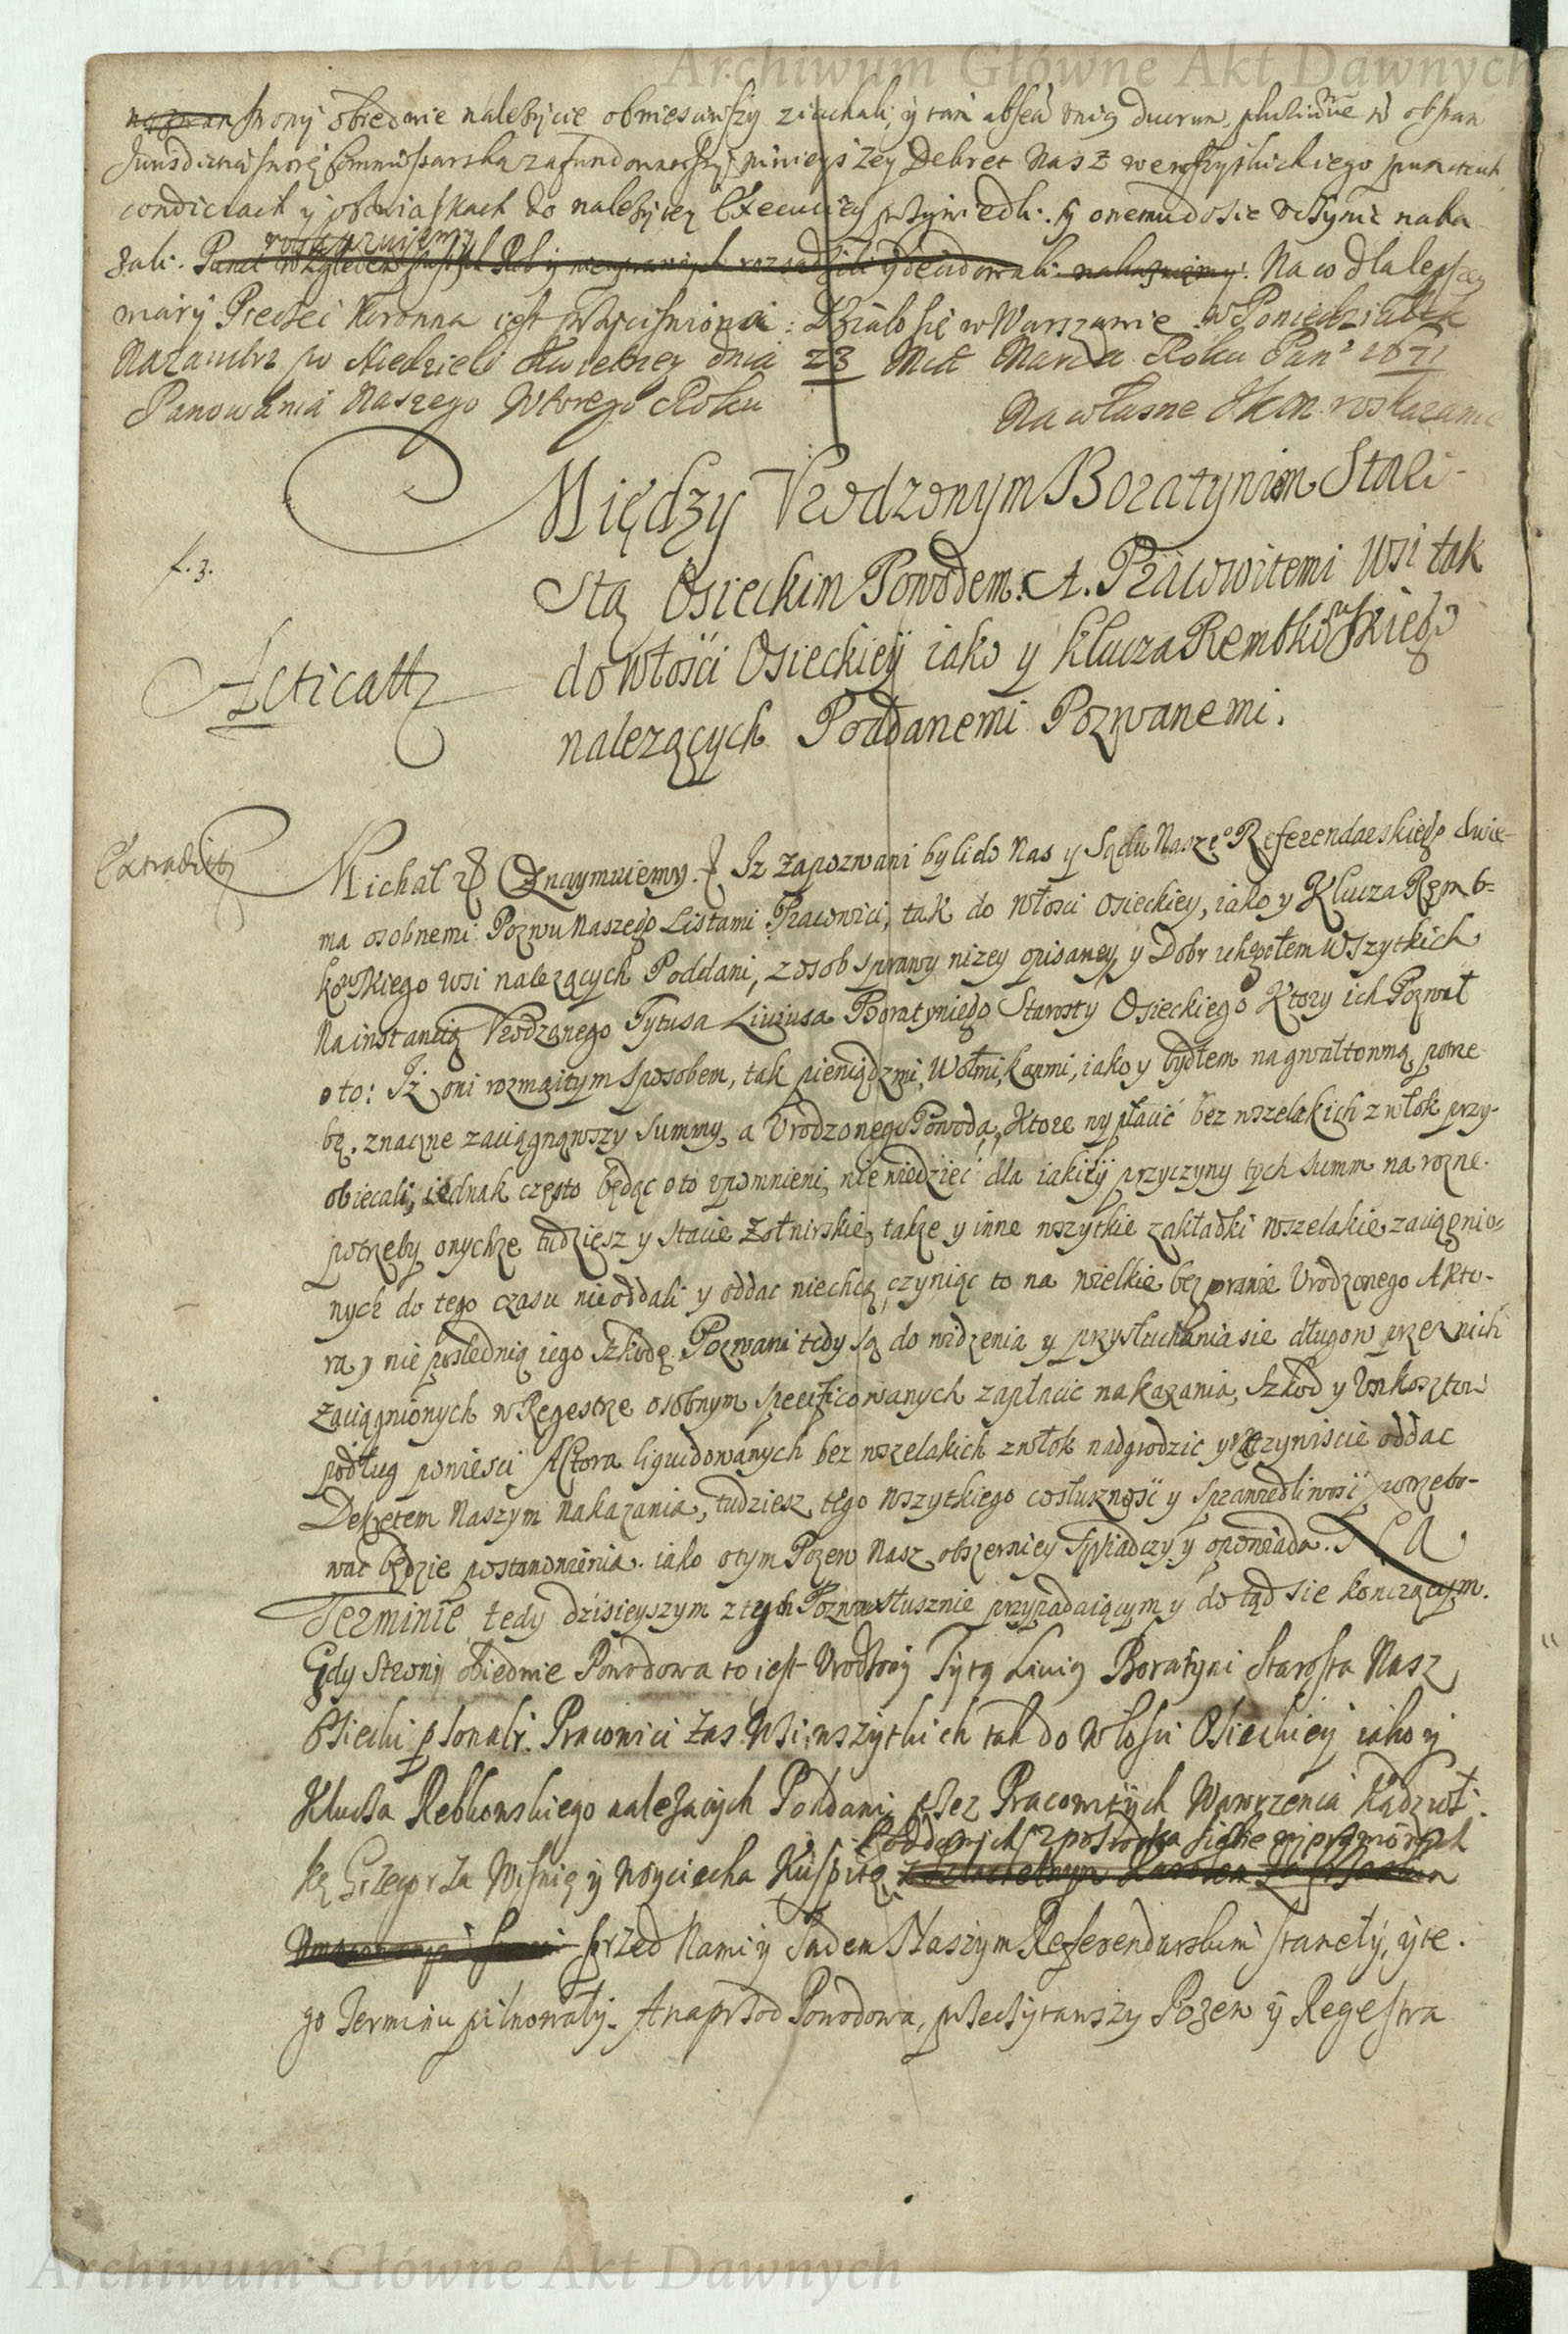 Archiwum Główne Akt Dawnych
strony obiedwie nalezycie obwiesciwszy ziachali, y tam
Jurisdictią swoię Commissarską zafundowawszy ninieyszey Dekret Nasz we wszystkiego punctach
condiciach y obowiąskach do nalezytey Executiey przywiedli. y onemu dosic vczynic naka
zali. Na co dla lepszey
wiary Pieczęć Koronna iest przycisniona. Działo się w Warszawie w Poniedziałek
Nazaiutrz po Niedzieli Kwietney dnia 23 Mca Marca Roku Pan° 1671
Panowania Naszego Wtorego Roku
Na własne JKM roskazanie
Między Vrodzonym Boratynim Staro-
stą Osieckim Powodem. A. Pracowitemi Wsi tak
f. 3.
do Włosci Osieckiey iako y Klucza Rembkowskiego
Acticatt
nalezących Poddanemi Pozwanemi.
Extradit
Michał Oznaymuiemy. Iz zapozwani byli do Nas y Sądu Nasze° Referendarskiego dwie-
ma osobnemi Pozwu Naszego Listami Pracowici, tak do Włosci Osieckiey, iako y Klucza Remb-
kowskiego wsi nalezących Poddani, z osob sprawy nizey opisaney y Dobr ich społem wszytkich
Na instantią Vrodzonego Tytusa Liuiusa Boratyniego Starosty Osieckiego Ktory ich Pozwał
o to: Iż oni rozmaitym sposobem, tak pieniądzmi, Wołmi, Końmi, iako y bydłem na gwałtowną potrze
bę, znaczne zaciągnąwszy summy, a Vrodzonego Powoda, Ktore wypłacić bez wszelakich zwłok przy-
obiecali, iednak często będąc o to vpomnieni, nie wiedzieć dla iakiey przyczyny tych summ na rozne
potrzeby onychze tudziesz y stacie Zołnirskie, takze y inne wszytkie zakładki wszelakie zaciągnio-
nych do tego czasu nie oddali y oddac niechcą, czyniąc to na wielkie bezprawie Vrodzonego Akto-
ra y nie poslednią iego Szkodę. Pozwani tedy są do widzenia y przysłuchania sie długow przez nich
zaciągnionych w Regestrze osobnym specificowanych zapłacic nakazania, Szkod y Vnkosztow
podług powiesci Actora liquidowanych bez wszelakich zwłok nadgrodzic y rzeczywiscie oddac
Dekretem Naszym nakazania, tudziesz tego wszytkiego co słusznosć y sprawiedliwosć potrzebo-
wac będzie postanowienia. iako o tym Pozew Nasz obszerniey swiadczy y opowiada. Na
Terminie tedy dzisieyszym z tych Pozwow słusznie przypadaiącym y do tąd sie konczącym.
Gdy Strony obiedwie Powodowa to iest Vrodzony Tytą Liuią Boratyni Starosta Nasz
Osiecki psonalr. Pracowici zas Wsi wszytkich tak do Włosci Osieckiey iako y
Klucza Rebkowskiego nalezących Poddani przez Pracowitych Wawrzenca Kądzioł-
kę Grzegorza Wisnię y Woyciecha Kuspitę
przed Nami y Sądem Naszym Referendarskim staneły, y te-
go Terminu pilnowały. A naprzod Powodowa, przeczytawszy Pozew y Regestra
Archiwum Główne Akt Dawnych